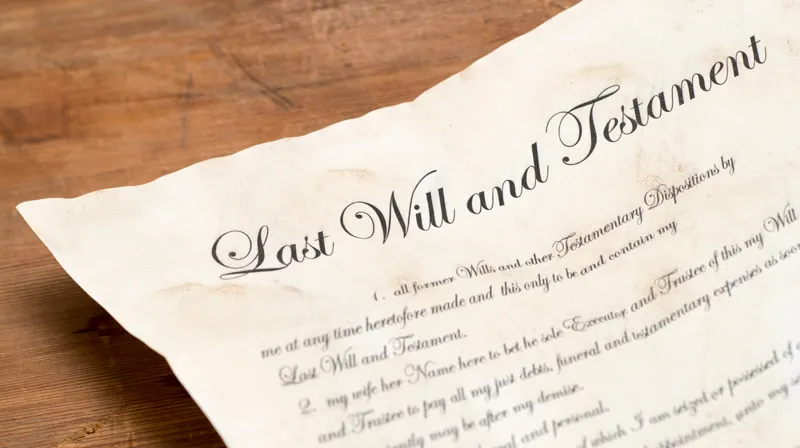 Last Will and Testament
1. all former Wills and other Testamentary Dispositions by
me at any time heretofore made and this only to be and contain my
Last Will and Testament.
2. my wife her Name here to bet he sole Executor and Trustee of this my Will
and Trustee to pay all my just debts, funeral and testamentary expenses as soon
may be after my demise.
and personal.
of which I am seized or possessed of
unto my